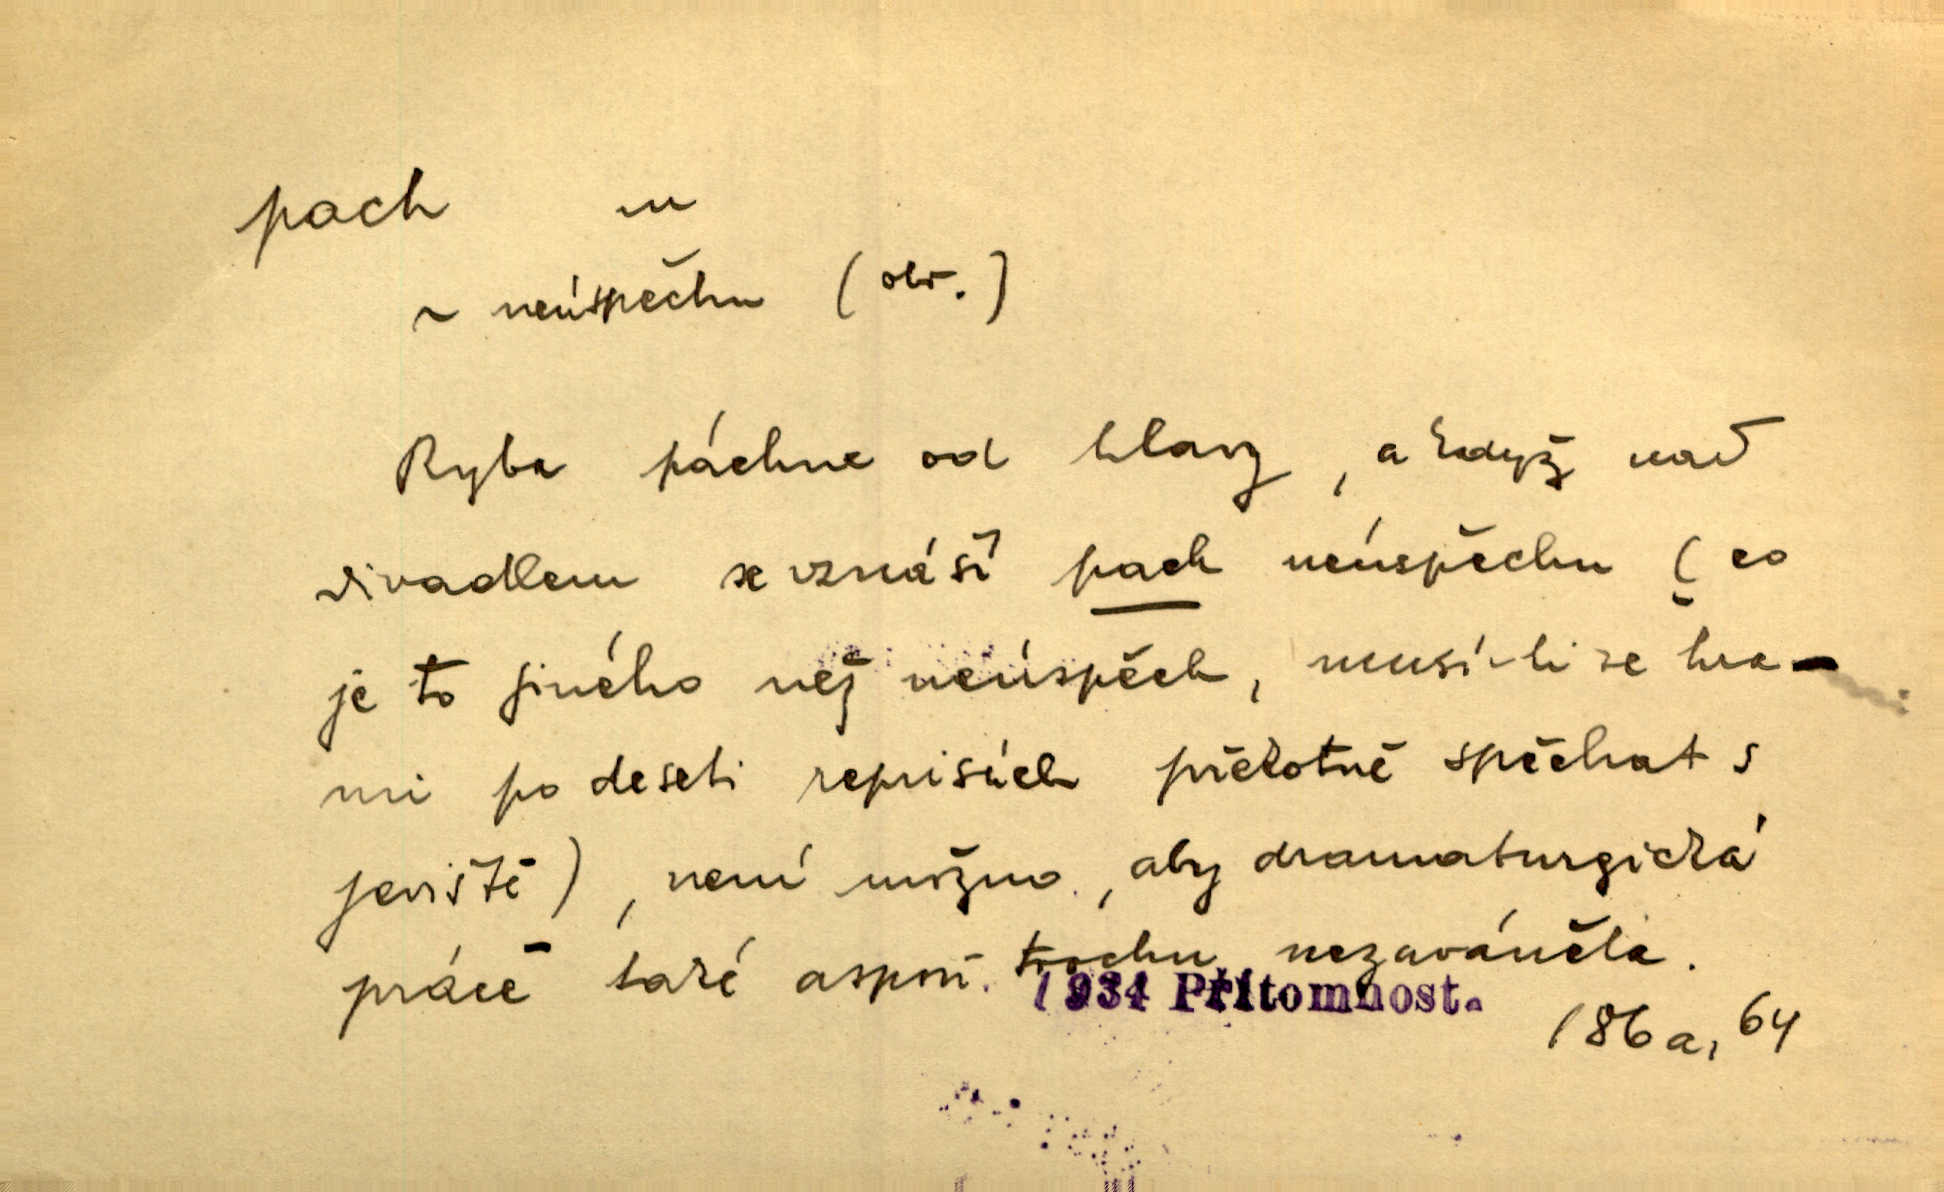 pach m
~ neúspěchu (obr.)
Ryba páchne od hlavy, a když nad
divadlem se vznáší pach neúspěchu (co
je to jiného než neúspěch, musí-li se hra-
mi po deseti reprisách překotně spěchat s
jeviště), není možno, aby dramaturgická
práce také aspoň trochu nezaváněla.
1934 Přítomnost.
186a, 64